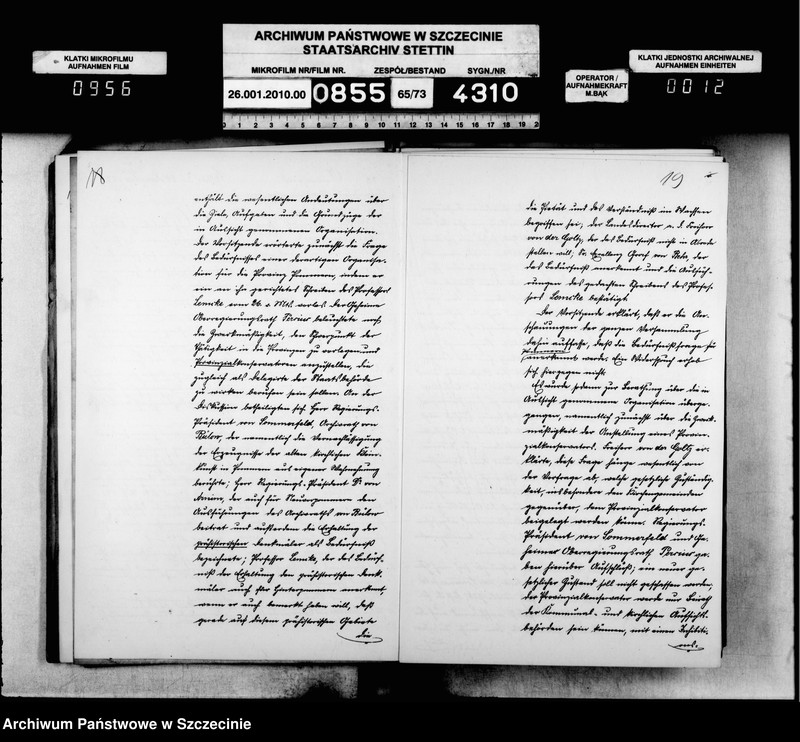 ARCHIWUM PAŃSTWOWE W SZCZECINIE
STAATSARCHIV STETTIN
KLATKI MIKROFILMU
AUFNAHMEN FILM
0956
MIKROFILM NR/FILM NR.
ZESPÓŁ/BESTAND
SYGN./NR
26.001.2010.00
0855
65/73
4310
0 1 2 3 4 5 6 7 8 9 10 11 12 13 14 15 16 17 18 19 2
OPERATOR /
AUFNAHMEKRAFT
M.BĄK
KLATKI JEDNOSTKI ARCHIWALNEJ
AUFNAHMEN EINHEITEN
0012
18
enthält die wesentlichen Andeutungen über
die Ziele, Aufgaben und die Grundzüge der
in Aussicht genommenen Organisation.
Der Vorsitzende erörterte zunächst die Frage
des Bedürfnisses einer derartigen Organisa-
tion für die Provinz Pommern, indem er
ein an ihn gerichtetes Schreiben des Professors
Lemcke vom 26. v. Mts. verlas. Der Geheime
Oberregierungsrath Persius beleuchtete noch
die Zweckmäßigkeit, den Schwerpunkt der
Thätigkeit in die Provinzen zu verlegen und
Provinzialkonservatoren anzustellen, die
zugleich als Delegirte der Staatsbehörde
zu wirken berufen sein sollen. An der
Diskussion betheiligten sich Herr Regierungs-
Präsident von Sommerfeld, Archivrath von
Bülow, der namentlich die Vernachlässigung
der Erzeugnisse der alten kirchlichen Klein-
kunst in Pommern aus eigener Wahrnehmung
berührte; Herr Regierungs-Präsident Dr von
Arnim, der auch für Neuvorpommern den
Ausführungen des Archivraths von Bülow
beitrat und außerdem die Erhaltung der
prähistorischen Denkmäler als Bedürfniß
bezeichnete; Professor Lemcke, der das Bedürf-
niß der Erhaltung der prähistorischen Denk-
mäler auch für Hinterpommern anerkennt,
wenn er auch bemerkt haben will, daß
gerade auf diesem prähistorischen Gebiete
die
19
die Pietät und das Verständniß im Wachsen
begriffen sei; der Landesdirektor a. D. Freiherr
von der Goltz, der das Bedürfniß nicht in Abrede
stellen will, Se. Excellenz Graf von, der
das Bedürfniß anerkennt und die Ausfüh-
rungen des gedachten Schreibens des Profes-
sors Lemcke bestätigt.
Der Vorsitzende erklärt, daß er die An-
schauungen der ganzen Versammlung
dahin auffasse, daß die Bedürfnißfrage für
Pommern
anerkannt werde. Ein Widerspruch erhob
sich hiergegen nicht.
Es wurde sodann zur Berathung über die in
Aussicht genommene Organisation überge-
gangen, namentlich zunächst über die Zweck-
mäßigkeit der Anstellung eines Provin-
zialkonservators. Freiherr von der Goltz er-
klärte, diese Frage hänge wesentlich von
der Vorfrage ab, welche gesetzliche Zuständig-
keit, insbesondere den Kirchengemeinden
gegenüber, dem Provinzialkonservator
beigelegt werden könne. Regierungs-
Präsident von Sommerfeld und Ge-
heimer Oberregierungsrath Persius ga-
ben hierüber Aufschluß; ein neuer ge-
setzlicher Zustand soll nicht geschaffen werden,
der Provinzialkonservator werde nur Beirath
der Kommunal- und kirchlichen Aufsichts-
behörden sein können, mit einem Inhibiti-
ons-
Archiwum Państwowe w Szczecinie